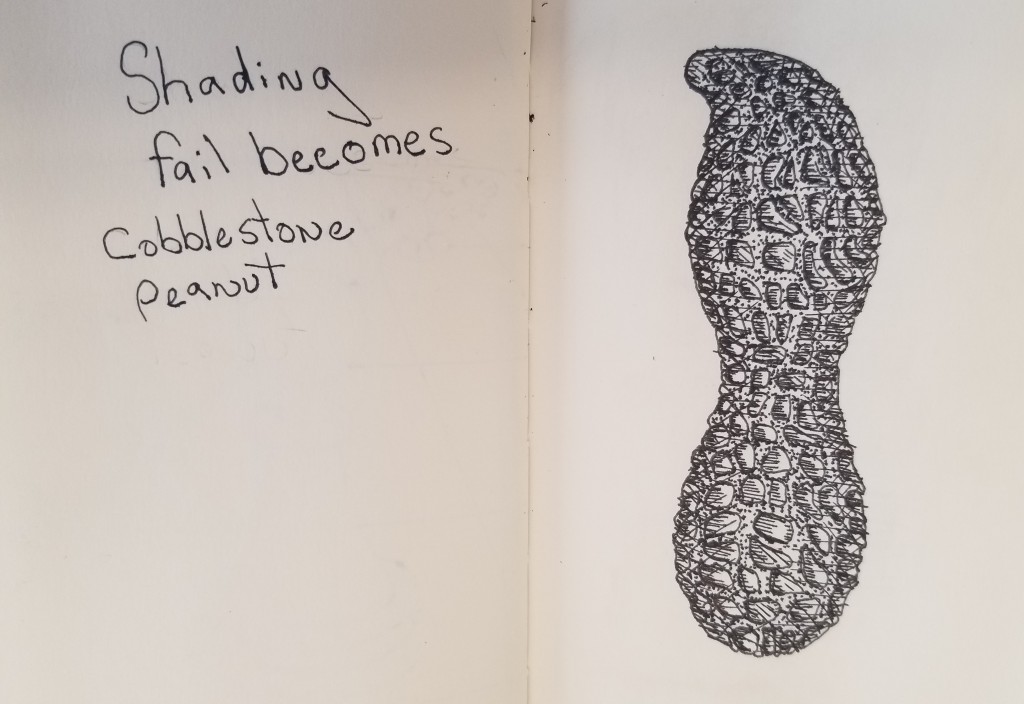 Shading
fail becomes
Cobblestone
Peanut